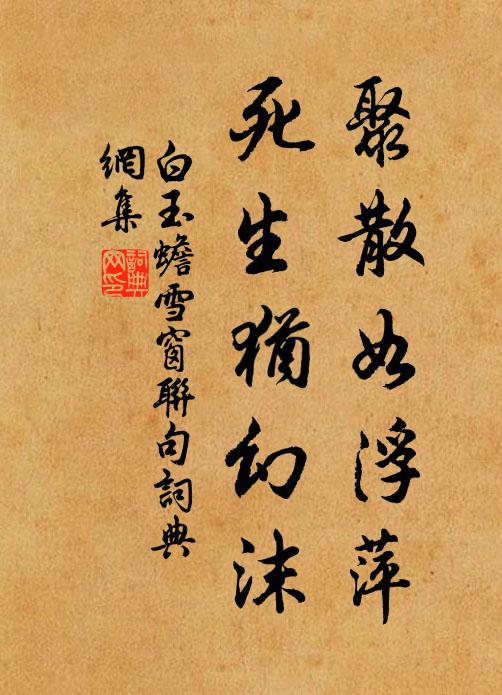 聚散如浮萍
死生犹幻沫
白玉蟾雪窗聯句詞典
網集
詞典网印